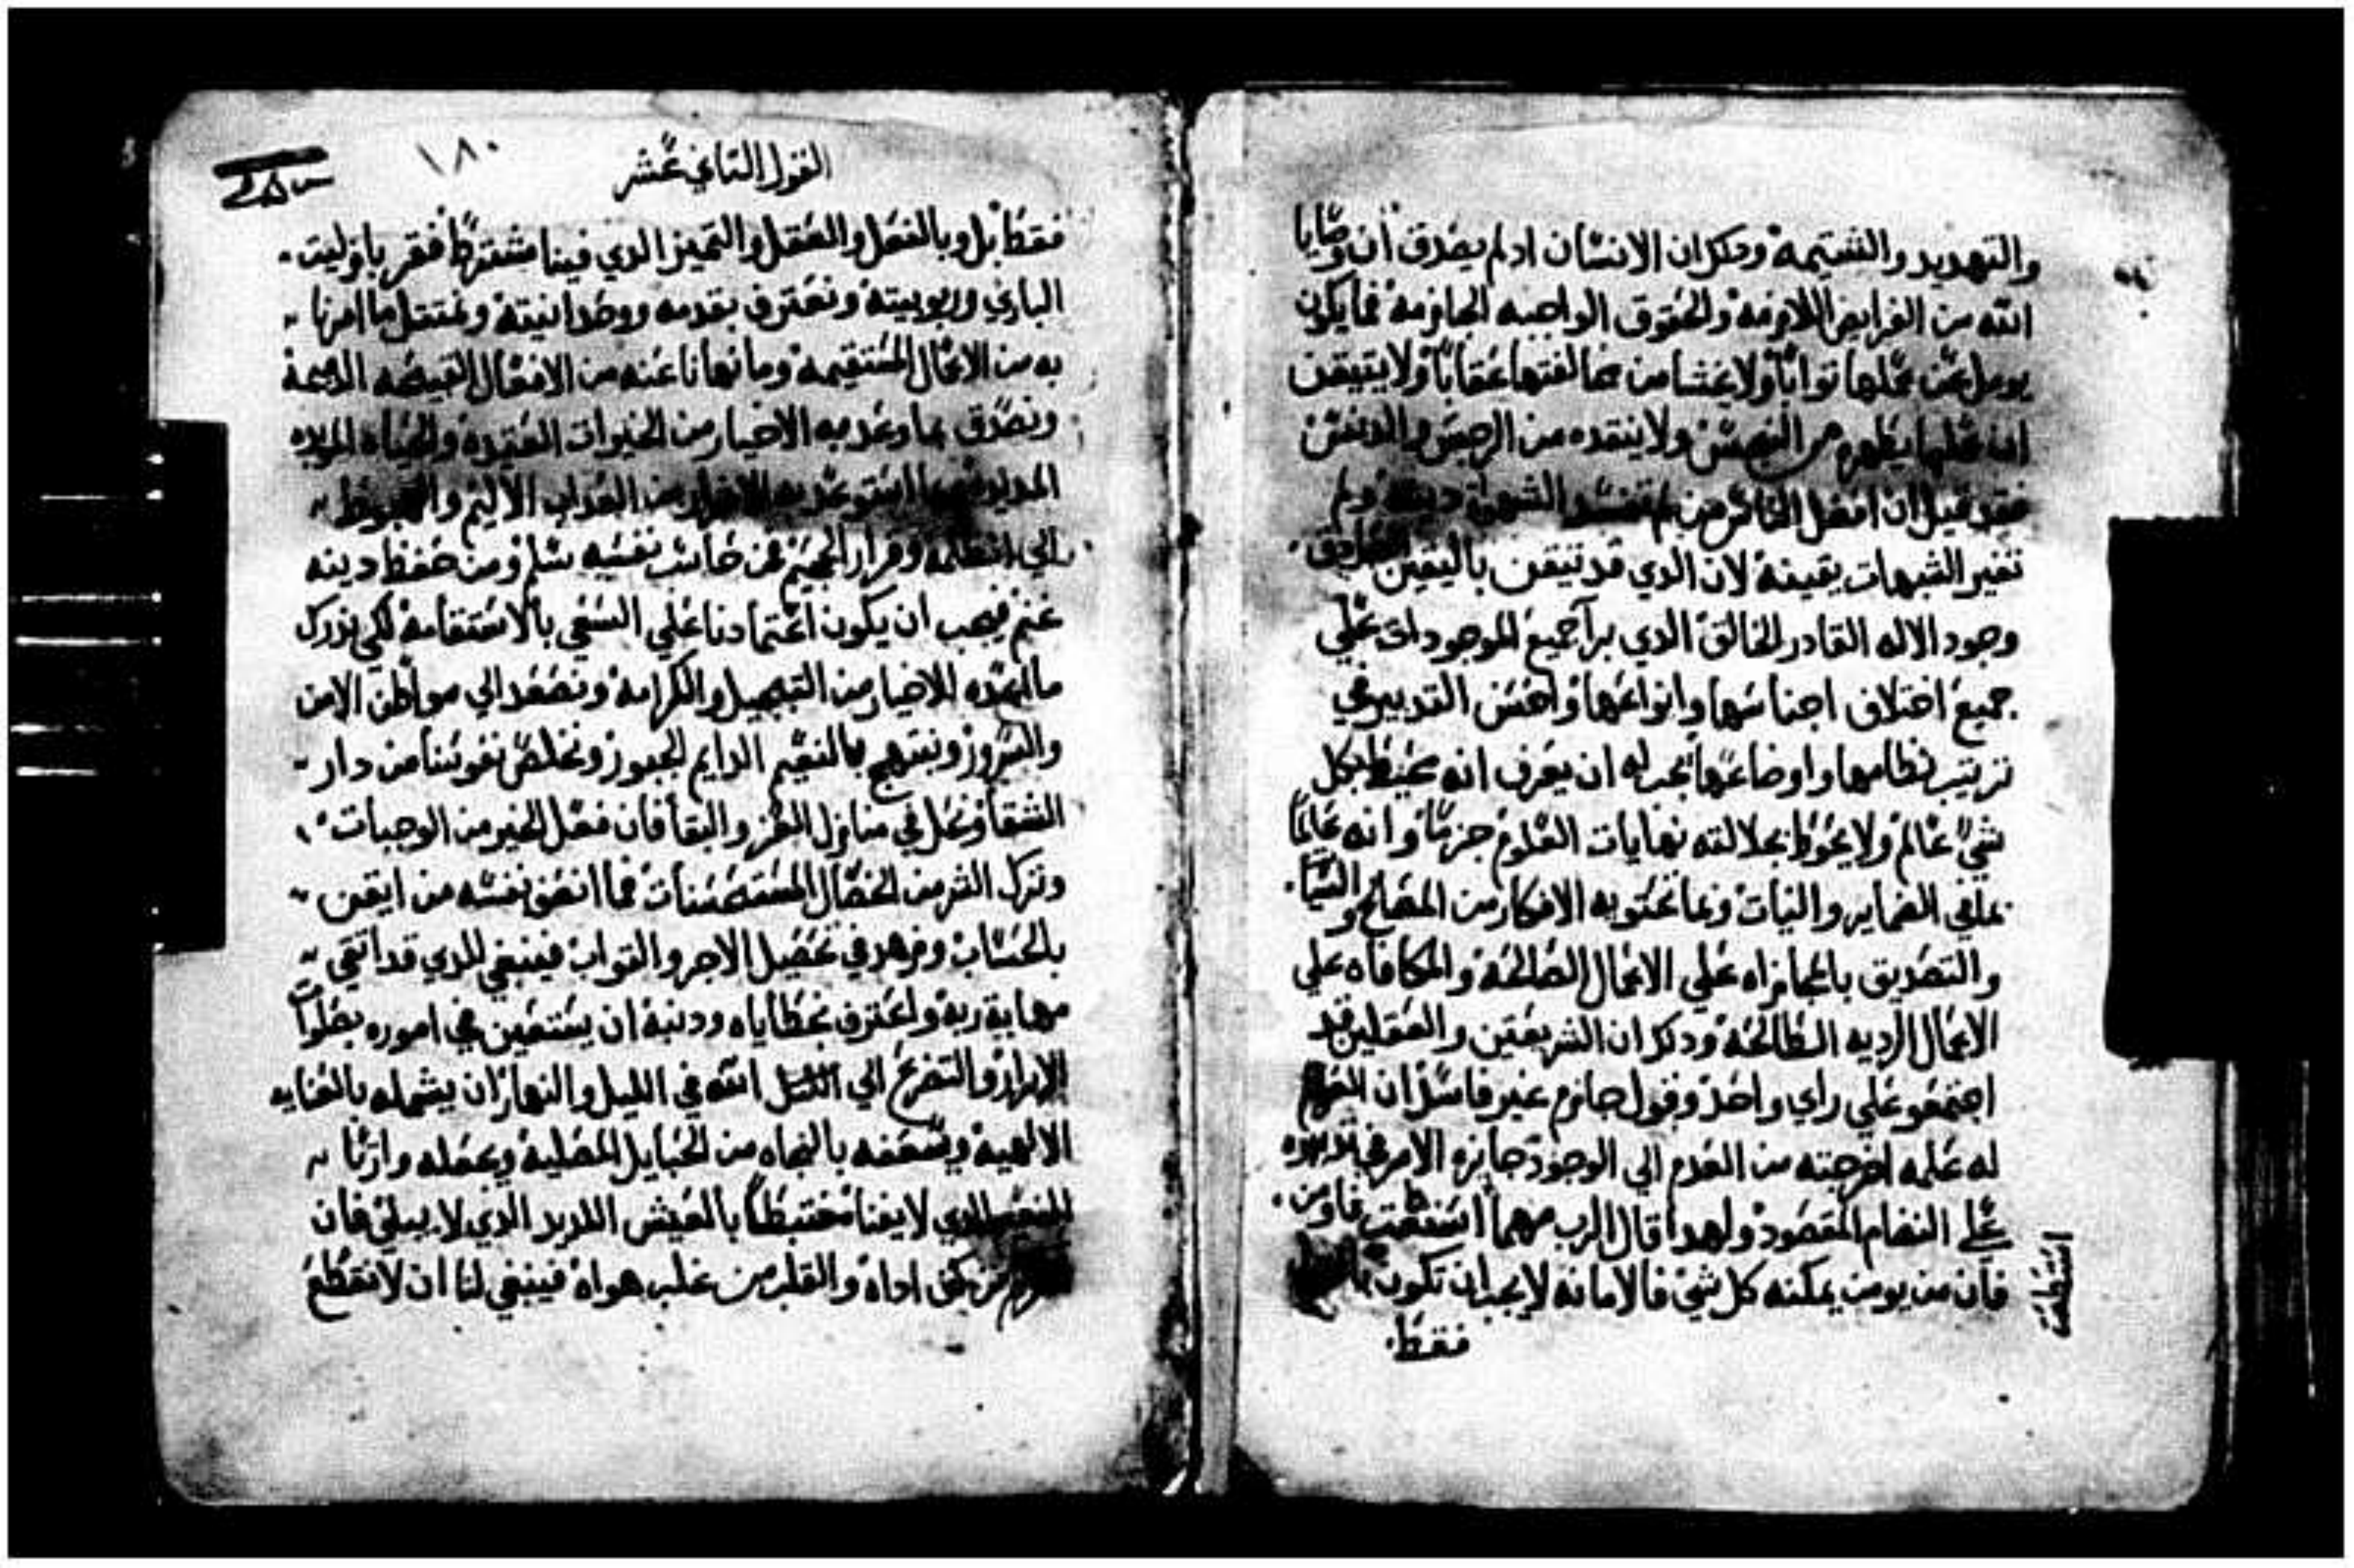 والتهديد والشتيمه ودكر ان الانسان ادا لم يصدق ان وصايا
الله من الفرايض اللازمه والحقوق الواجبه الجازمه فما يكون
يومل عن عملها ثوابًا ولا يخشا من مخالفتها عقابًا ولا يتيقن
ان عملها يطهره من النجس ولا ينقده من الرجس والدنس
فقد قيل ان افضل الناس من لم تفسد الشهوات دينه ولم
تغير الشبهات يقينه لان الدي قد تيقن باليقين الصادق
وجود الاله القادر الخالق الدي برا جميع الموجودات علي
جميع اختلاف اجناسها وانواعها واحسن التدبير في
ترتيب نظامها واوضاعها يجب له ان يعرف انه محيط بكل
شي عالم ولا يحوط بجلالته نهايات العلوم جزمًا وانه عالمًا
بما في الضماير والنيات وبما تحتويه الافكار من المصالح و السيات
والتصديق بالمجازاه علي الاعمال الصالحه والمكافاه علي
الاعمال الرديه الطالحه ودكر ان الشريعتين والعقلين قد
اجتمعو علي راي واحد وقول جازم غير فاسد ان
له علمه اخرجته من العدم الي الوجود جايزه الامر في
علي النضام المقصود ولهدا قال الرب مهما استطعت فاومن
فان من يومن يمكنه كل شي فالامانه لا يجب ان تكون
استطعت
فقط
القول التاني عشر
١٨٠
فقط بل وبالفعل والعقل والتميز الدي فينا مشتركًا فنقر بازليت
الباري وربوبيته ونعترف بقدمه ووحدانيته ونمتتل ما امرنا
به من الاعمال المستقيمه وما نهانا عنه من الافعال القبيحه الدميمة
ونصدق بما وعد به الاخيار من الخيرات العتيده والحياه الموبده
المديده وبما استوعد به الاشرار من العداب الاليم والهبوط
الي الظلمه وقرار الجحيم فمن حاسب نفسه سلم ومن حفظ دينه
غنم فيجب ان يكون اعتمادنا علي السعي بالاستقامه لكي ندرك
ما اعده للاخيار من التبجيل والكرامه ونصعد الي مواطن الامن
والسرور ونبتهج بالنعيم الدايم الحبور ونخلص نفوسنا من دار
الشقا ونحل في منازل العز والبقا فان فعل الخير من الوجبات
وترك الشر من الخصال المستحسنات فما انصف نفسه من ايقن
بالحساب وزهد في تحصيل الاجر والتواب فينبغي للدي قد اتقي
مهابة ربه واعترف بخطاياه ودنبه ان يستعين في اموره بصلوات
الابرار والتضرع الي الله في الليل والنهار ان يشمله بالعنايه
الالهيه ويسعفه بالنجاه من الحبايل المضليه ويجعله وارثًا
للنعيم الدي لا يفنا مغتبطًا بالعيش اللديد الدي لا يبلي فان
من كف اداه والقلب من غلب هواه فينبغي لنا ان لا نقطع